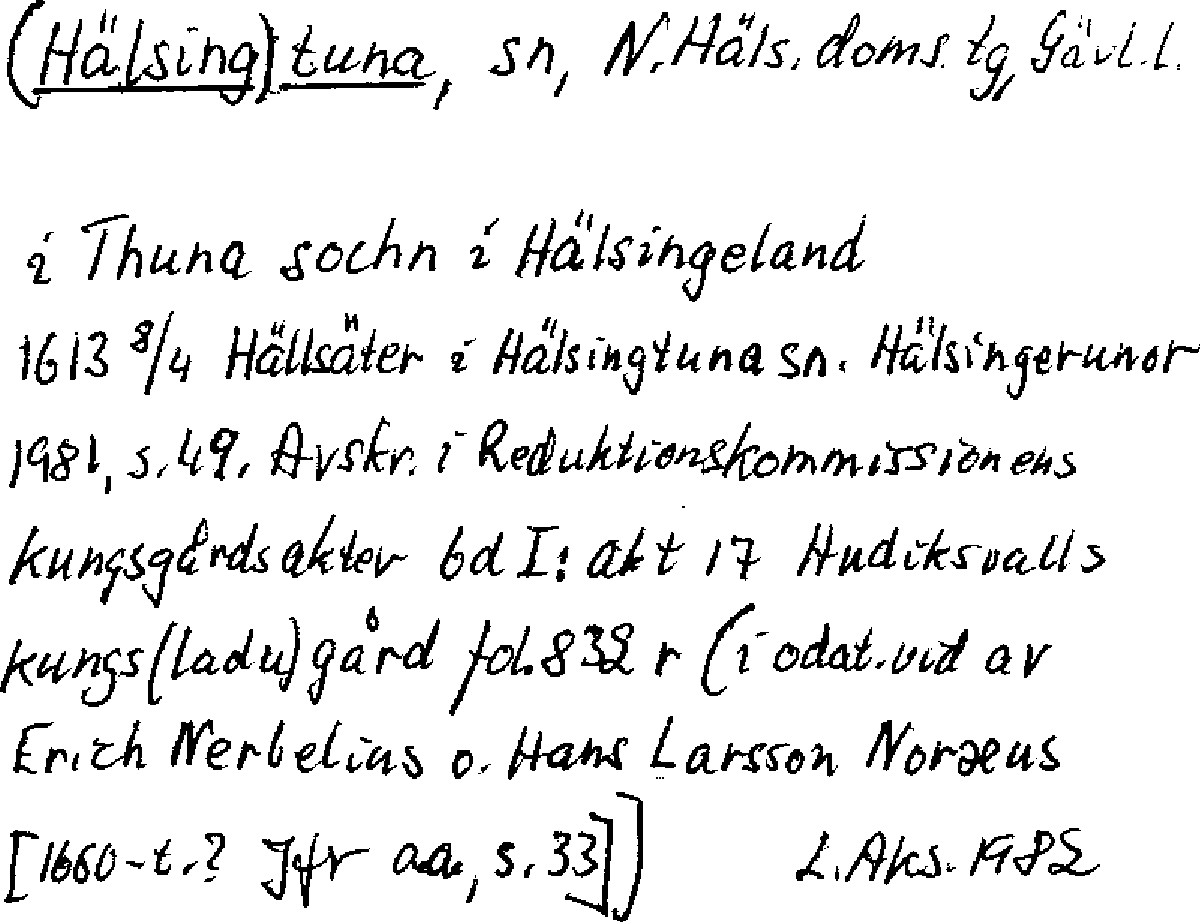 (Hälsing)tuna, sn, N. Häls. doms. tg, Gävl. l.
i Thuna sochn i Hälsingeland
1613 8/4 Hällsäter i Hälsingtuna sn. Hälsingerunor
1981, s. 49. Avskr. i Reduktionskommissionens
kungsgårdsakter bd I: akt 17 Hudiksvalls
kungs(ladu)gård fol. 832 r (i odat. vid av
Erich Nerbelius o. Hans Larsson Noræus
[1660-t.? Jfr a.a., s. 33])   L. Aks. 1982